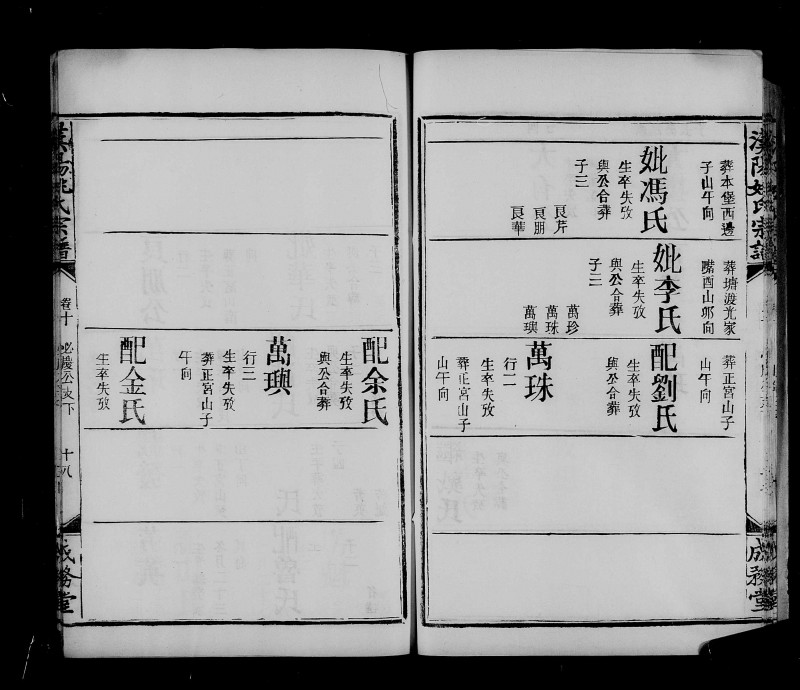 漢陽姚氏宗譜
成務堂
葬本堡西邊
子山午向
妣馮氏
生卒失攷
與公合葬
子三
艮芹
艮朋
艮華
葬塘渡光家
嘴酉山卯向
妣李氏
生卒失攷
與公合葬
子三
萬珍
萬珠
萬璵
葬正宮山子
山午向
配劉氏
生卒失攷
與公合葬
萬珠
行二
生卒失攷
葬正宮山子
山午向
配余氏
生卒失攷
與公合葬
萬璵
行三
生卒失攷
葬正宮山子
午向
配金氏
生卒失攷
漢陽姚氏宗譜
卷十
公支下
十八
成務堂